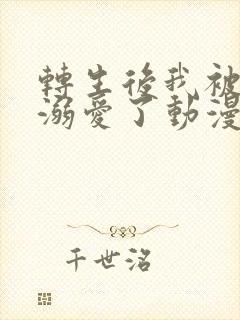 轉生後我被
溺愛了動漫
千世洺